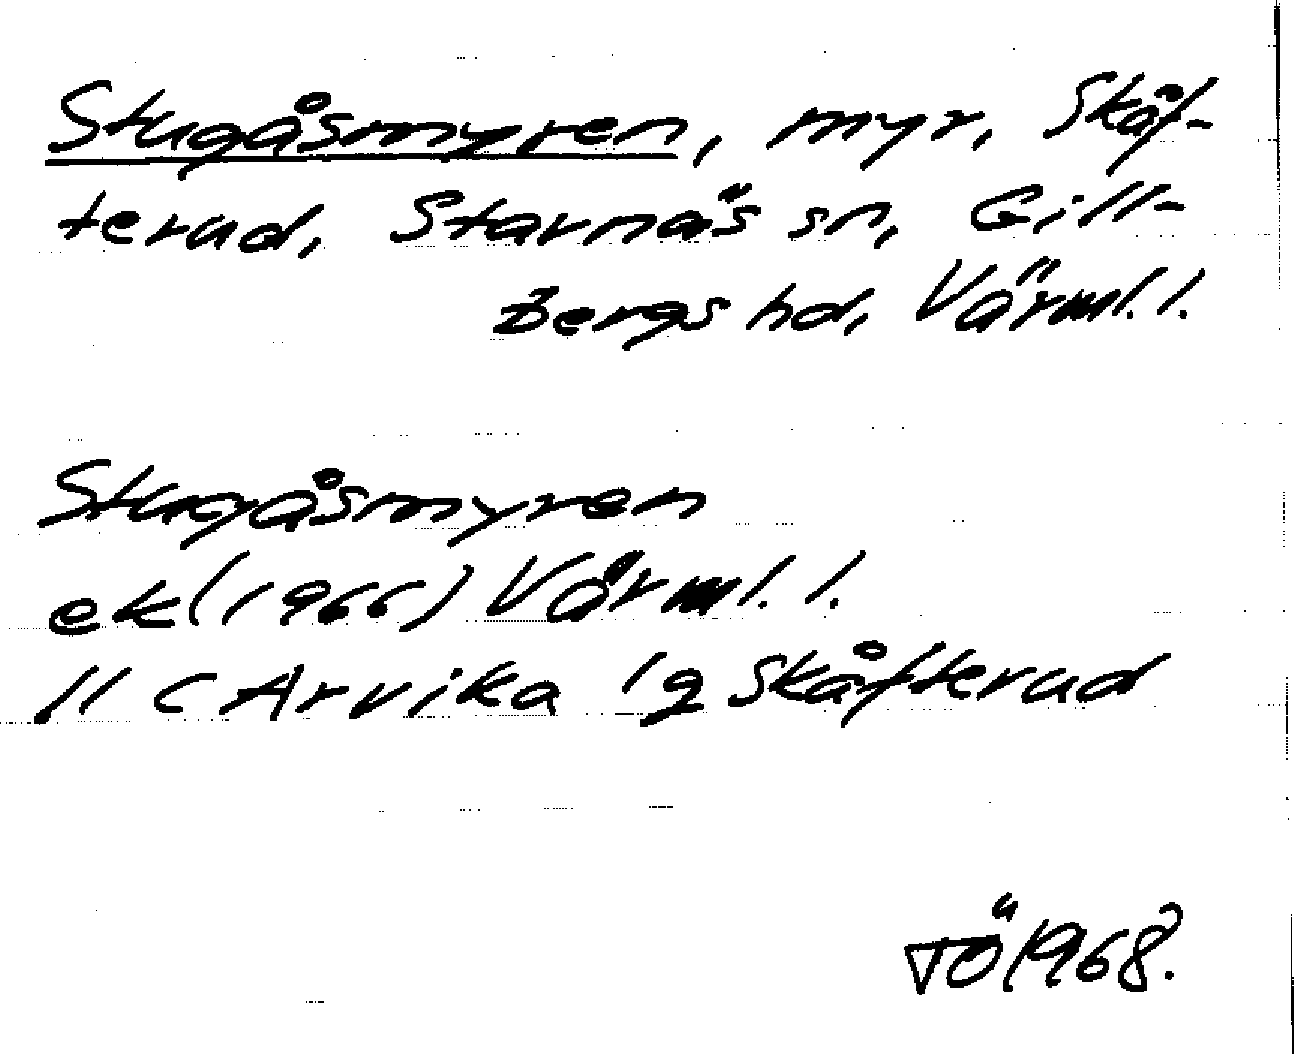 Stugåsmyren, myr, Skåf-
terud, Stavnäs sn, Gill-
bergs hd, Värml. l.
Stugåsmyren
ek (1966) Värml. l.
11 C Arvika 1g Skåfterud
VÖ 1968.